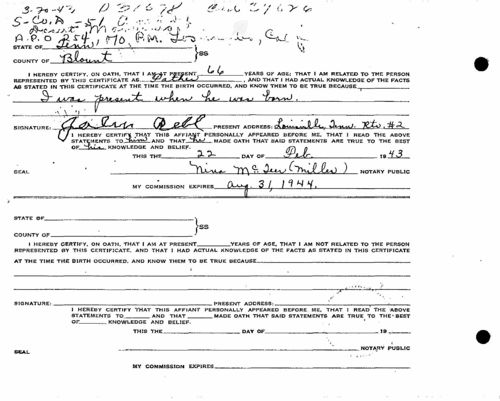 3-30-43
S-Co. A -
Desert
A.P.O 254, Los Cal
STATE OF Tenn
SS
COUNTY OF Blount
I HEREBY CERTIFY, ON OATH, THAT I AM AT PRESENT 66 YEARS OF AGE; THAT I AM RELATED TO THE PERSON
REPRESENTED BY THIS CERTIFICATE AS Father, AND THAT I HAD ACTUAL KNOWLEDGE OF THE FACTS
AS STATED IN THIS CERTIFICATE AT THE TIME THE BIRTH OCCURRED, AND KNOW THEM TO BE TRUE BECAUSE
I was present when he was born.
SIGNATURE: PRESENT ADDRESS: Louisville, Tenn. Rte. #2
I HEREBY CERTIFY THAT THIS AFFIANT PERSONALLY APPEARED BEFORE ME, THAT I READ THE ABOVE
STATEMENTS TO him AND THAT he MADE OATH THAT SAID STATEMENTS ARE TRUE TO THE BEST
OF his KNOWLEDGE AND BELIEF.
THIS THE 22 DAY OF Feb. 1943
SEAL Nina McTeer (Miller) NOTARY PUBLIC
MY COMMISSION EXPIRES Aug. 31, 1944.
STATE OF
SS
COUNTY OF
I HEREBY CERTIFY, ON OATH, THAT I AM AT PRESENT YEARS OF AGE, THAT I AM NOT RELATED TO THE PERSON
REPRESENTED BY THIS CERTIFICATE, AND THAT I HAD ACTUAL KNOWLEDGE OF THE FACTS AS STATED IN THIS CERTIFICATE
AT THE TIME THE BIRTH OCCURRED, AND KNOW THEM TO BE TRUE BECAUSE
SIGNATURE: PRESENT ADDRESS:
I HEREBY CERTIFY THAT THIS AFFIANT PERSONALLY APPEARED BEFORE ME, THAT I READ THE ABOVE
STATEMENTS TO AND THAT MADE OATH THAT SAID STATEMENTS ARE TRUE TO THE BEST
OF KNOWLEDGE AND BELIEF.
THIS THE DAY OF 19
SEAL NOTARY PUBLIC
MY COMMISSION EXPIRES